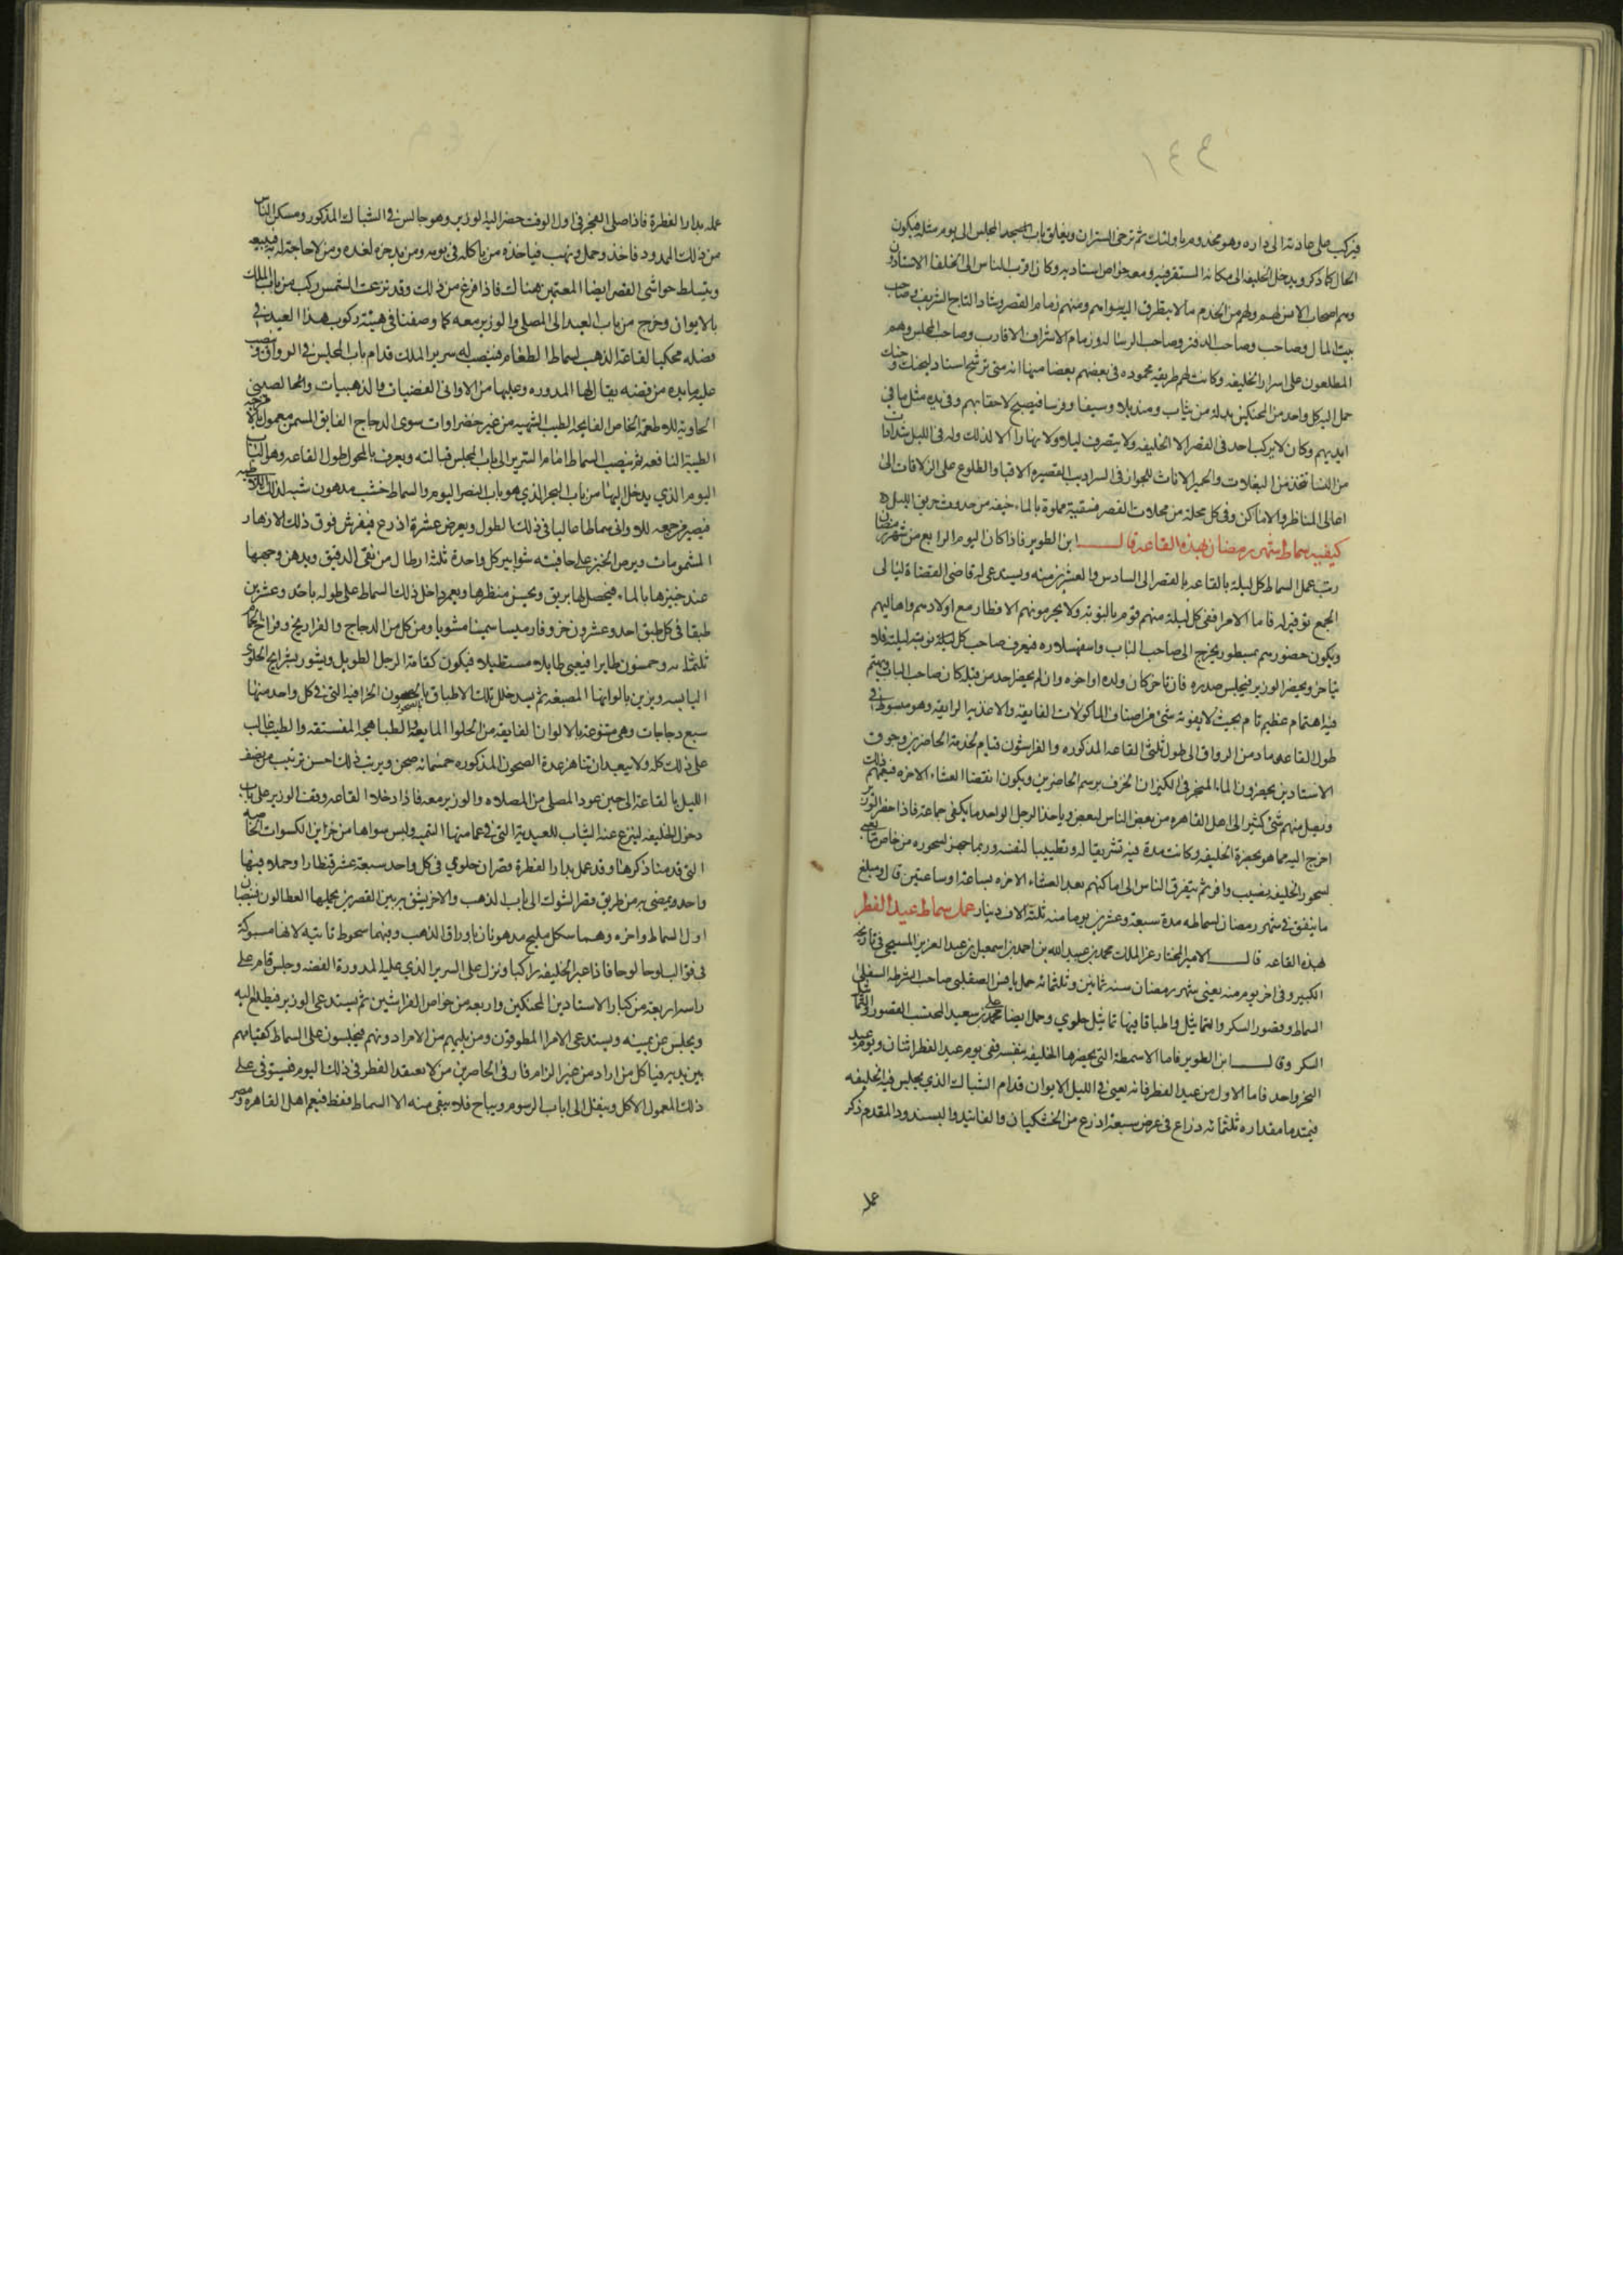 ١٤٤
فيركب على عادته الى داره وهو مخدوم باولئك ثم ترخى الستران ويغلق باب المجلس الى يوم مثله فيكون
الحال كما ذكر ويدخل الخليفه الى مكانه المستقر فيه ومعه خواص استاديه وكان اقرب الناس الى الخلفا الاستادون
وهم اصحاب الانس لهم ولهم من الخدم مالا يتطرق اليه سواهم ومنهم زمام القصر وشاد التاج الشريف وصاحب
بيت المال وصاحب الدفتر وصاحب الرساله وزمام الاشراف الاقارب وصاحب المجلس وهم
المطلعون على اسرار الخليفه وكانت لهم طريقه محموده في بعضهم بعضا منها انه متى ترشح استاد للحنك وحنك
حمل اليه كل واحد من المحنكين بدلة من ثياب ومنديلا وسيفا وفرسا فيصبح لاحقا بهم وفي يده مثل ما في
ايديهم وكان لا يركب احد في القصر الا الخليفه ولا ينصرف ليلا ولا نهارا الا لذلك وله في الليل شدادات
من النسا تخدمن البغلات والحمير الاناث للجواز في السراديب القصيره الاقبا والطلوع على الزلاقات الى
اعالى المناظر والاماكن وفي كل محلة من محلات القصر فسقية مملوة بالماء خيفه من حدوث حريق بالليل
كيفيه سماط شهر رمضان بهذه القاعه قال ابن الطوير فاذا كان اليوم الرابع من شهر رمضان
رتب عمل السماط كل ليلة بالقاعه بالقصر الى السادس والعشرين منه ويستدعى له قاضى القضاة ليالى
الجمع توقيرا له فاما الامرا ففى كل ليلة منهم قوم بالنوبة ولا يحرمونهم الافطار مع اولادهم واهاليهم
ويكون حضورهم بمسطور يخرج الى صاحب الباب واسفهسلاره فيعرف صاحب كل ليلة نوبته ليلته فلا
يتاخر ويحضر الوزير فيجلس صدره فان تاخر كان ولده او اخوه وان لم يحضر احد من قبله كان صاحب الباب ويهتم
فيه اهتمام عظيم تام بحيث لا يفوته شئ من اصناف الماكولات الفايقه والاغذيه الرايقه وهو مبسوط في
طول القاعه ماد من الرواق الى طول ثلثى القاعه المذكوره والفراشون قيام لخدمة الحاضرين وحوف
الاستادين يحضرون الماء المبخر في الكيزان الخزف برسم الحاضرين ويكون انقضا العشاء الاخره فيعمهم ذلك
ويصل منهم شئ كثير الى اهل القاهره من بعض الناس لبعض وياخذ الرجل الواحد ما يكفى جماعة فاذا حضر الوزير
اخرج اليه مما هو بحضرة الخليفه وكانت مدة فيه تشريفا له وتطييبا لنفسه وربما جهز لسحوره من خاص ما يعبى
لسحور الخليفه نصيب وافر ثم يتفرق الناس الى اماكنهم بعد العشاء الاخره بساعة او ساعتين قال ومبلغ
ما ينفق في شهر رمضان لسماطه مدة سبعة وعشرين يوما منه ثلثة الاف دينار عمل سماط عيد الفطر
بهذه القاعه قال الامير المختار عز الملك محمد بن عبيد الله بن احمد بن اسمعيل بن عبد العزيز المسبحى في تاريخه
الكبير وفي اخر يوم منه يعنى شهر رمضان سنه ثمانين وثلثمائه حمل يانس الصقلبى صاحب الشرطه السفلى
السماط وقصور السكر والتماثيل واطباقا فيها تماثيل حلوي وحمل ايضا على بن سعيد المحتسب القصور والتماثيل
السكر وقال ابن الطوير فاما الاسمطة التى يحضرها الخليفه بنفسه ففى يوم عيد الفطر اثنان ويوم عيد
النحر واحد فاما الاول من عيد الفطر فانه يعبى في الليل الايوان قدام الشباك الذي يجلس فيه الخليفه
فيمتد ما مقداره ثلثمائه ذراع في عرض سبعة اذرع من الخشكنان والفانيد والبسندود المقدم ذكر
عمله
عمله بدار الفطرة فاذا صلى الفجر في اول الوقت حضر اليه الوزير وهو جالس في الشباك المذكور ومكن الناس
من ذلك الممدود فاخذ وحمل ونهب فياخذه من ياكله في يومه ومن يدخره لغده ومن لا حاجة له به فيبيعه
ويتسلط حواشى القصر ايضا المعتهن هناك فاذا فرغ من ذلك وقد بزغت الشمس ركب من باب الملك
بالايوان وخرج من باب العيد الى المصلى والوزير معه كما وصفنا في هيئة ركوب هذا العيد في
فصله محكيا لقاعة الذهب لسماط الطعام فينصب له سرير الملك قدام باب المجلس في الرواق ونصب
عليه مايده من فضه يقال لها المدوره وعليها من الاوانى الفضيات والذهبيات والصينى
الحاويه للاطعمة الخاص الفايحة الطيب الشهيه من غير خضراوات سوى الدجاج الفايق المسمن معمول بالامزجه
الطيبة النافعه ثم ينصب السماط امام السرير الى باب المجلس قبالته ويعرف بالمحول طول القاعه وهو الباب
اليوم الذي يدخل اليها من باب البحر الذي هو باب القصر اليوم والسماط خشب مدهون شبه الدكك اللاطيه
فيصير من جمعه للاوانى سماطا عاليا في ذلك الطول وبعرض عشرة اذرع فيفرش فوق ذلك الازهار
المشمومات ويرص الخبز على حافتيه شوابير كل واحدة ثلثة ارطال من نقى الدقيق ويدهن وجهها
عند خبزها بالماء فيحصل لها بريق ويحسن منظرها ويعمر داخل ذلك السماط على طوله باحد وعشرين
طبقا في كل طبق احد وعشرون خروفا رميسا سمينا مشويا ومن كل من الدجاج والفراريخ وفراخ الحمام
ثلثمائه وخمسون طايرا فيعبى طايلا مستطيلا فيكون كقامة الرجل الطويل ويسور بشرايح الحلوى
اليابسه ويزين بالوانها المصبغه ثم يسد خلل تلك الاطباق بالصحون الخزافيه التى في كل واحد منها
سبع دجاجات وهى متنوعة بالالوان الفايقه من الحلوا المايعه والطباهجه المفستقه والطيب غالب
على ذلك كله ولا يبعد ان تناهز عدة الصحون المذكوره خمسمائه صحن ويرتب ذلك احسن ترتيب من نصف
الليل بالقاعة الى حين عود المصلى من الصلاه والوزير معه فاذا دخل القاعه وقف الوزير على باب
دخول الخليفه لينزع عنه الثياب العيدية التى في عمامتها اليتيمه ولبس سواها من خزاين الكسوات الخاصه
التى قدمنا ذكرها وقد عمل بدار الفطرة قصران حلوي في كل واحد سبعة عشر قنطارا وحملا فمنها
واحد ويمضى به من طريق قصر الشوك الى باب الذهب والاخر يشق به بين القصرين يحملها العطالون فينصبان
اول السماط واخره وهما شكل مليح مدهونان باوراق الذهب وفيهما شخوط ناتيه لانها مسبوكة
في قوالب لوحا لوحا فاذا عبر الخليفه راكبا ونزل على السرير الذي عليه المدورة الفضه وجلس قام على
راسه اربعة من كبار الاستادين المحنكين واربعه من خواص الفراشين ثم يستدعى الوزير فيطلع اليه
ويجلس عن يمينه ويستدعى الامرا المطوقون ومن يليهم من الامرا دونهم فيجلسون على السماط كقيامهم
بين يديه فياكل من اراد من غير الزام فان في الحاضرين من لا يعتقد الفطر في ذلك اليوم فيستوفى على
ذلك المعمول الاكل وينقل الى ارباب الرسوم ويباح فلا يبقى منه الا السماط فقط فيعم اهل القاهره ومصر